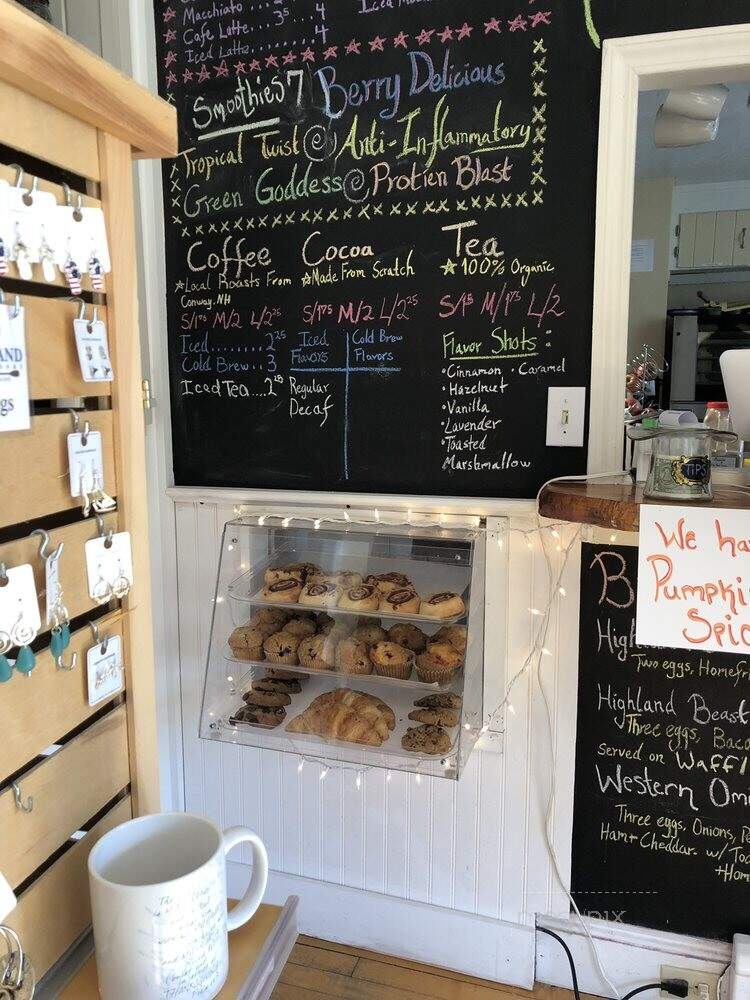 Macchiato
Cafe Latte.. 3⁵ .. 4
Iced Latte........ 4
Iced
Smoothies 7
Berry Delicious
Tropical Twist @ Anti-Inflammatory
Green Goddess @ Protien Blast
Coffee
★Local Roasts From
Conway, NH
S/1⁷⁵ M/2 L/2²⁵
Iced............2²⁵
Cold Brew..3
Iced Tea....2
Cocoa
★Made From Scratch
S/1⁷⁵ M/2 L/2²⁵
Iced
Flavors
Cold Brew
Flavors
Regular
Decaf
Tea
★100% Organic
S/1⁵ M/1⁷⁵ L/2
Flavor Shots:
•Cinnamon •Caramel
•Hazelnut
•Vanilla
•Lavender
•Toasted
Marshmallow
TIPS
We ha
Pumpki
Spic
B
High
Two eggs, Homefr
Highland Beast
Three eggs, Baco
served on Waffl
Western Om
Three eggs, Onions, Pe
Ham + Cheddar. w/ Toa
+Hom
LAND
gs